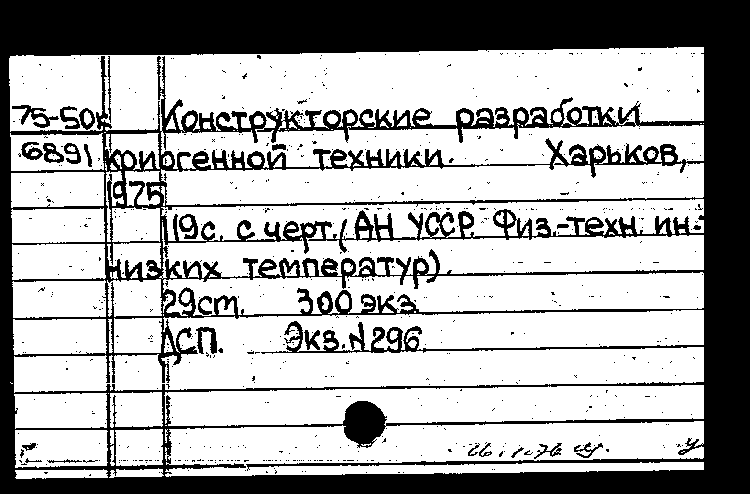 75-50к Конструкторские разработки
6891 криогенной техники. Харьков,
1975
119с. с черт. (АН УССР. Физ.-техн. ин-т
низких температур).
29ст. 300 экз.
ДСП. Экз. N 296.